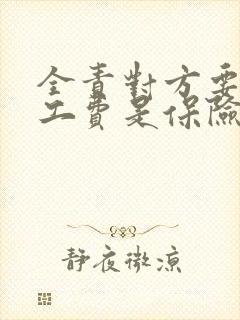 全责對方要
工費是保險
靜夜微涼